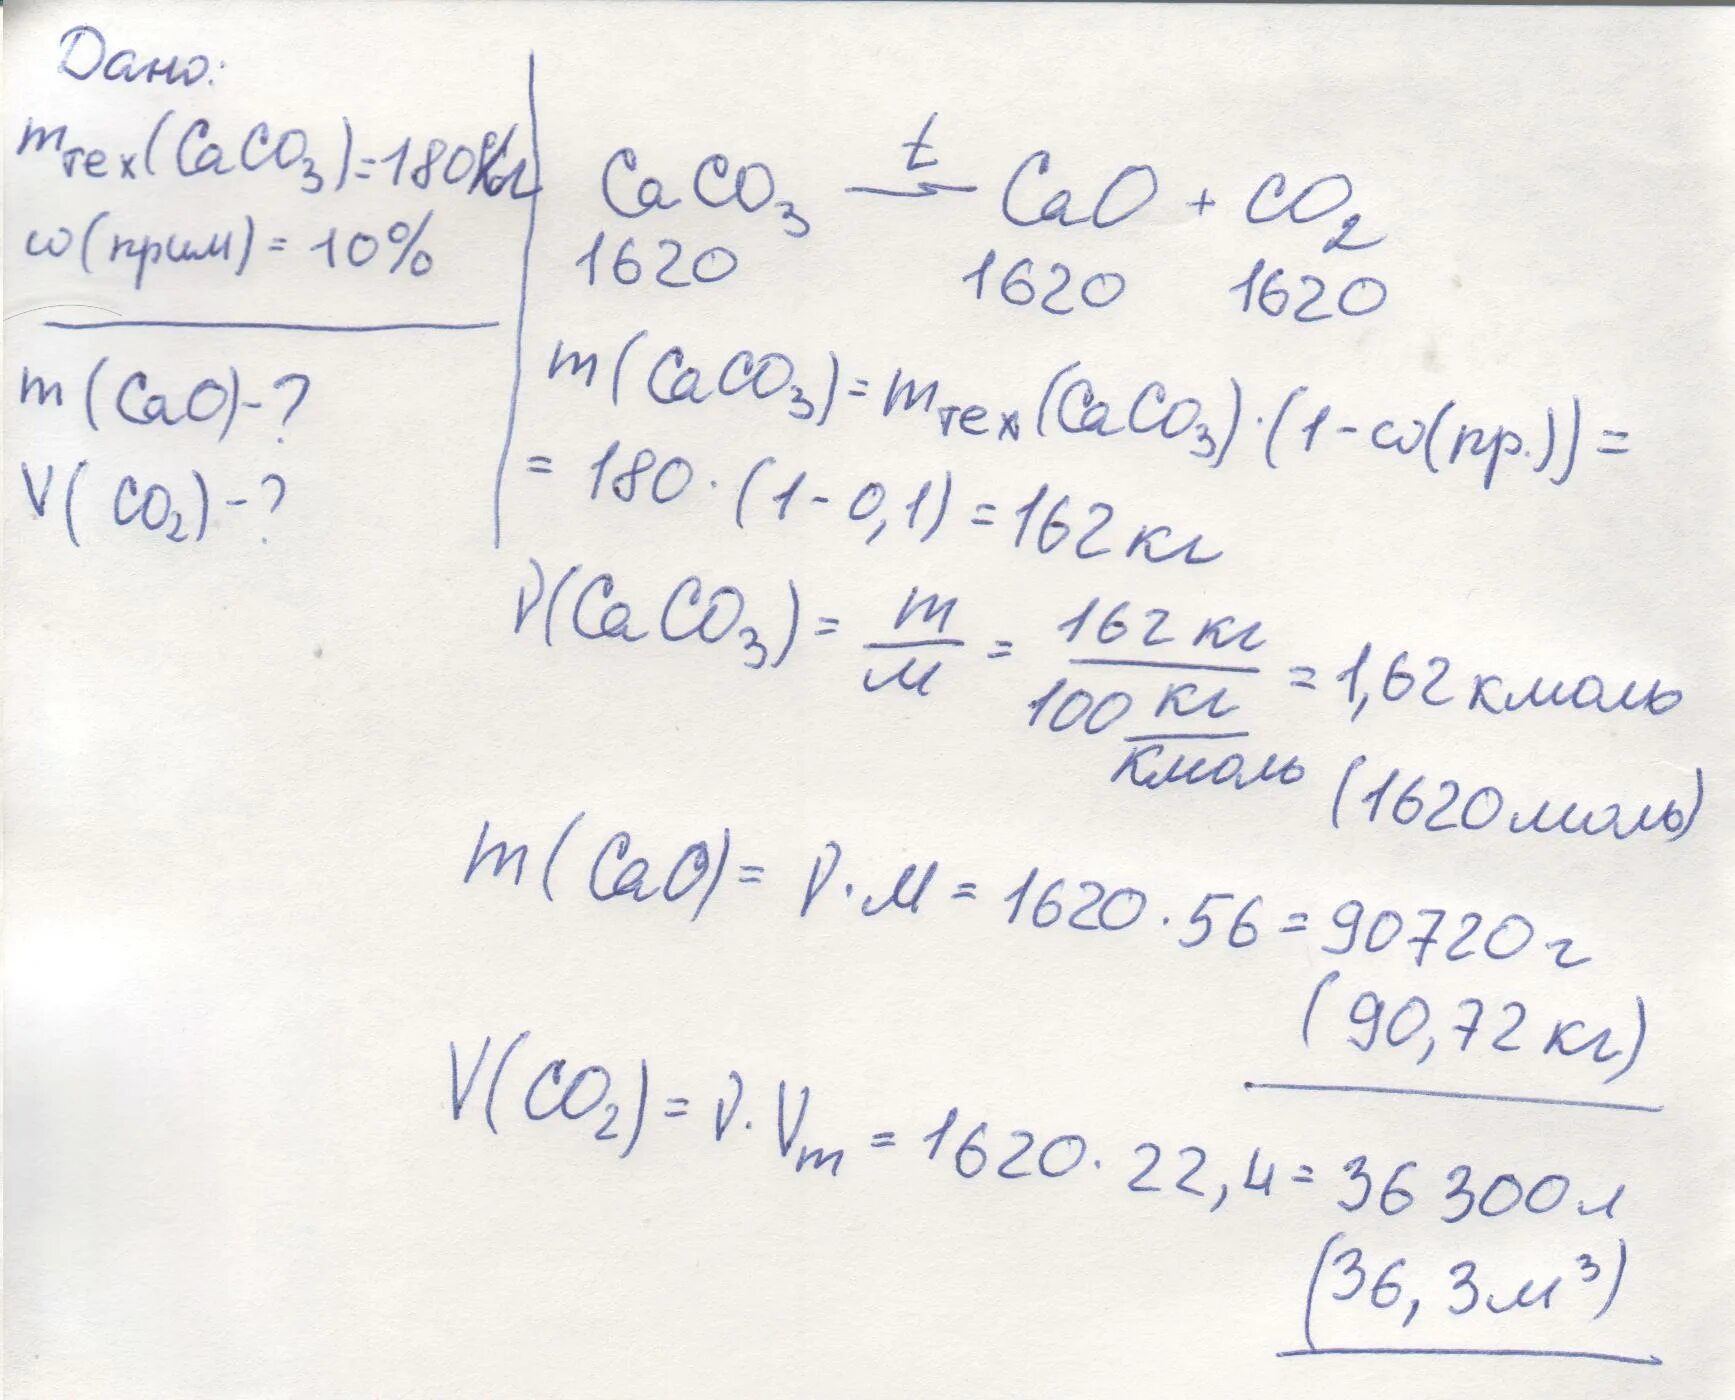 Дано:
mтех(CaCO₃)=180кг
ω(прим)=10%
m(CaO)-?
V(CO₂)-?
t
CaCO₃ → CaO + CO₂
1620 1620 1620
m(CaCO₃)=mтех(CaCO₃)·(1-ω(пр.))=
=180·(1-0,1)=162кг
ν(CaCO₃)= m/M = 162кг/100 кг/кмоль =1,62кмоль
(1620моль)
m(CaO)= ν·M=1620·56=90720г
(90,72кг)
V(CO₂)=ν·Vm=1620·22,4=36 300л
(36,3м³)